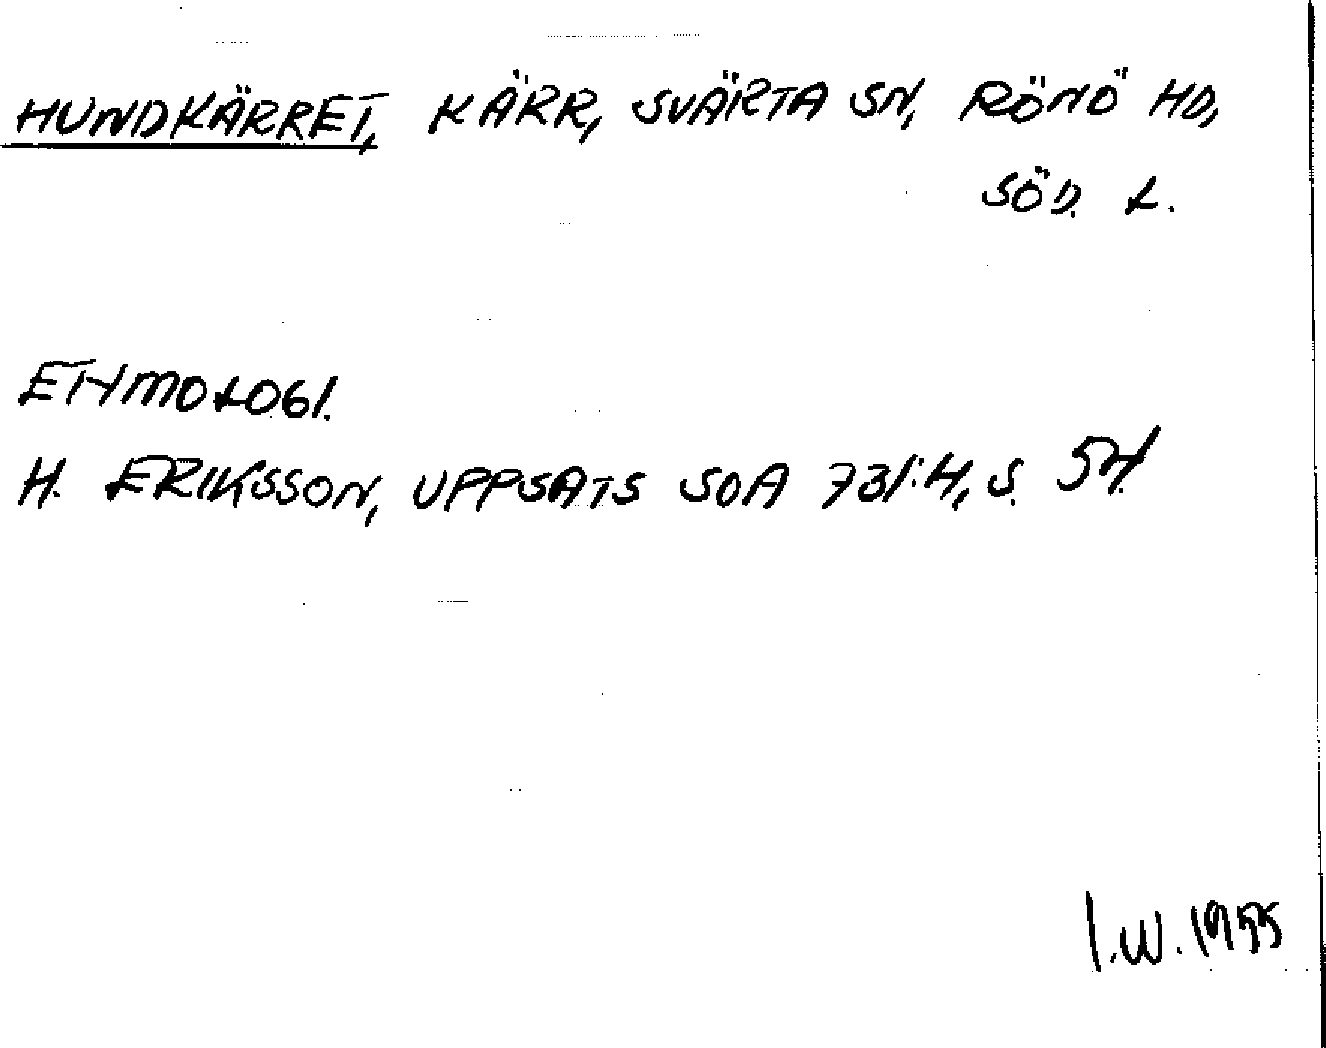 HUNDKÄRRET, KÄRR, SVÄRTA SN, RÖNÖ HD,
SÖD. L.
ETYMOLOGI.
H. ERIKSSON, UPPSATS SOA 731:4, S. 54.
I.W. 1955